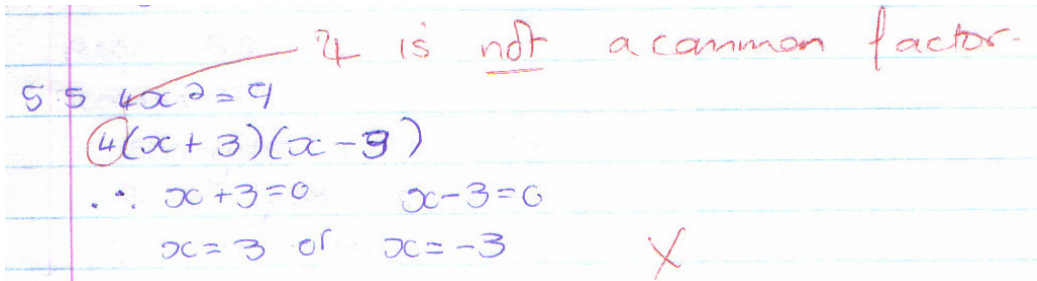 4 is not a common factor.
5.5 4x² = 9
4(x + 3)(x - 3)
∴ x + 3 = 0 x - 3 = 0
x = 3 or x = -3